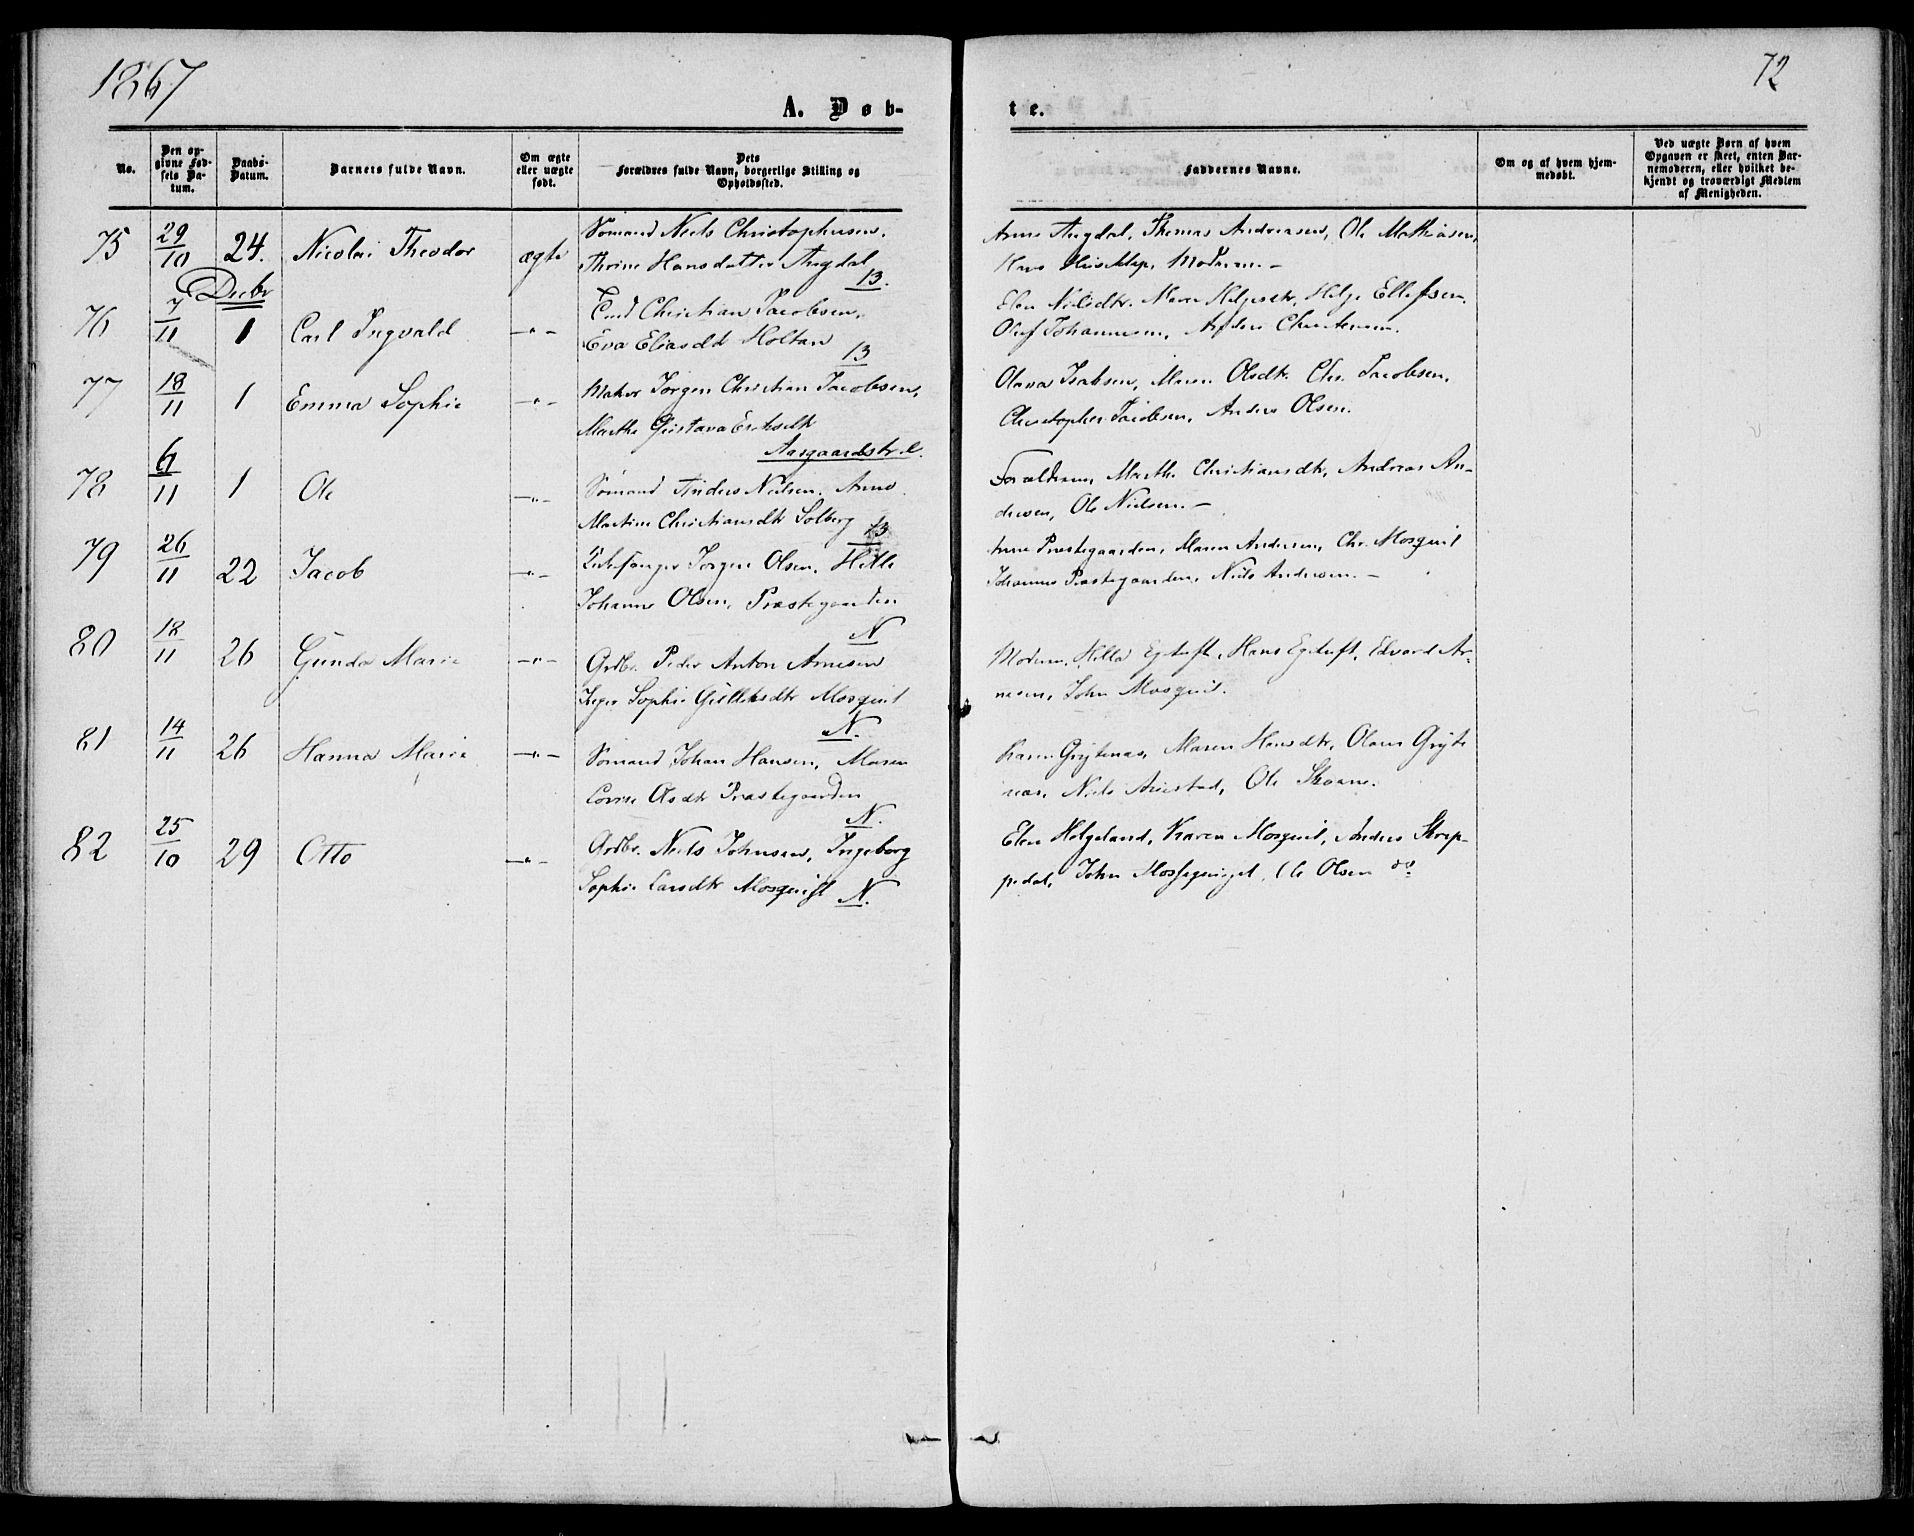 1867
72
A. Døb-
te.
No.
Den op-
givne Fød-
sels Da-
tum.
Daabs-
Datum.
Barnets fulde Navn.
Om ægte
eller uægte
født.
Dets
Forældres fulde Navn, borgerlige Stilling og
Opholdssted.
Faddernes Navne.
Om og af hvem hjem-
medøbt.
Ved uægte Børn af hvem
Opgaven er skeet, enten Bar-
nemoderen, eller hvilket be-
kjendt og troværdigt Medlem
af Menigheden.
75 29/10 24. Nicolai Theodor ægte Sømand Niels Christophersen,
Thrine Hansdatter Augdal
13.
Anne Augdal, Thomas Andreasen, Ole Mathiasen,
Hans Moderen. –
Decbr
76 7/11 1 Carl Ingvald –"– Christian Jacobsen,
Eva Eliasdtr Holtan
13
Elen Nilsdtr. Maren Helgesdtr, Helge Ellefsen.
Oluf Johannesen, Anders Christensen.
77 18/11 1 Emma Sophie –"– Maker Jørgen Christian Jacobsen,
Marthe Gustava
Aasgaardstr. e.
Olava Isaksen, Maren Olsdtr. Chr. Jacobsen,
Christopher Jacobsen, Anders Olsen.
78 6/11 1 Ole –"– Sømand Anders Nielsen. Anne
Martine Christiansdtr Solberg
13
Forældrene, Marthe Christiansdtr, Andreas An-
dresen, Ole Nielsen. –
79 26/11 22 Jacob –"– Jørgen Olsen, Helle
Johanne Olsen, Præstegaarden
N
Anne Præstegaarden, Maren Andersen, Chr. Mosquil
Johannes Præstegaarden, Niels Andersen. –
80 18/11 26 Gunda Marie –"– Grdbr. Peder Anton Arnesen
Inger Sophie Mosquist
N.
Moderen, Hella Hans Edvard Ar-
nesen, John Mosquil.
81 14/11 26 Hanna Marie –"– Sømand Johan Hansen, Maren
Olsdtr Præstegaarden
N.
Karen Grytenæs, Maren Hansdtr, Olaus Gryte
næs, Niels Ole
82 25/10 29 Otto –"– Grdbr. Niels Johnsen, Ingeborg
Sophie Larsdtr Mosquist N.
Elen Helgeland, Karen Mosquil, Anders Skrep-
pedal, John Ole Olsen do